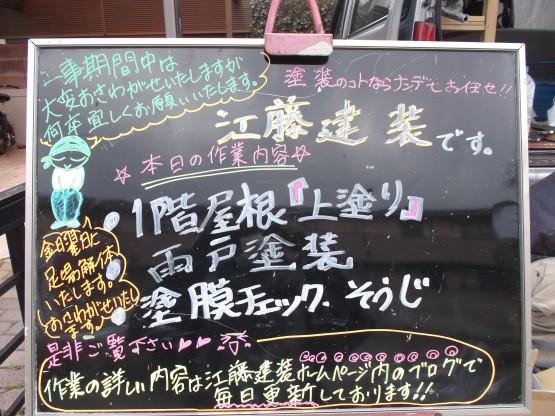 工事期間中は
大変おさわがせいたしますが
何卒宜しくお願いいたします。
塗装のコトならナンデモお任せ!!
江藤建装です。
☆本日の作業内容☆
・1階屋根『上塗り』
・雨戸塗装
・塗膜チェック、そうじ
金曜日に
足場の解体
いたします。
おさわがせいたし
ます。
是非ご覧下さい♥♥
作業の詳しい内容は江藤建装ホームページ内のブログで
毎日更新しております!!